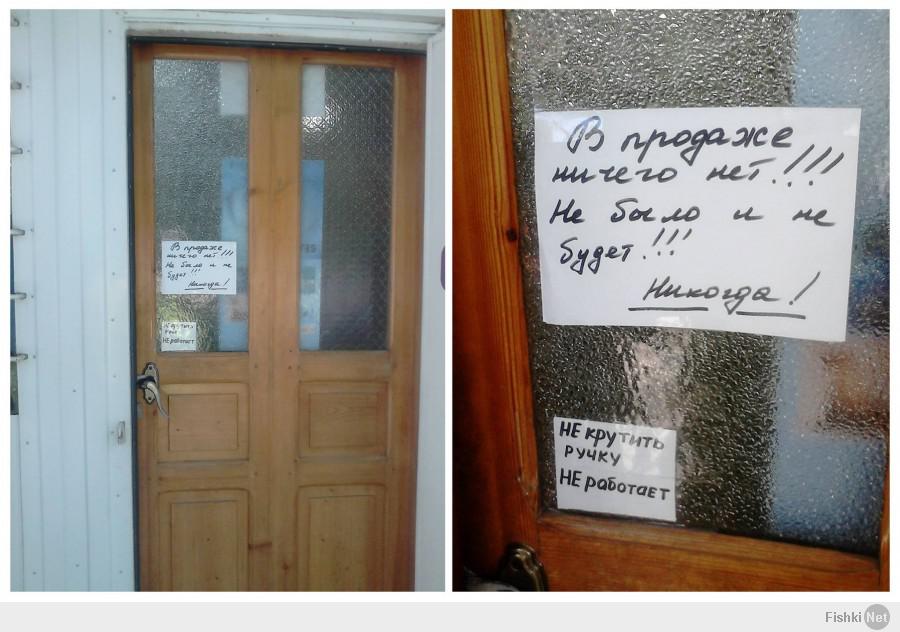 В продаже
ничего нет!!!
Не было и не
будет!!!
Никогда!
НЕ КРУТИТЬ
РУЧКУ
НЕ работает
В продаже
ничего нет!!!
Не было и не
будет!!!
Никогда!
НЕ КРУТИТЬ
РУЧКУ
НЕ работает
Fishki Net